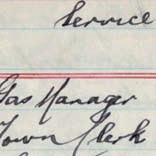 Service
Gas Manager
Town Clerk